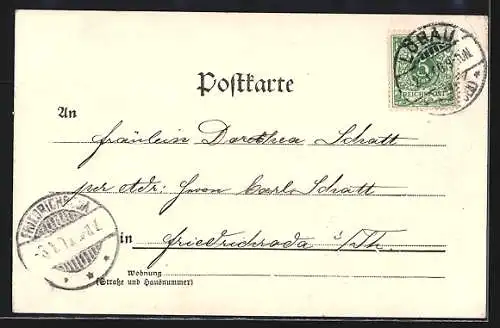 LÖBAU
5
REICHSPOST
Postkarte
An
Fräulein Dorothea Schatt
per Adr: Herrn Carl Schatt
in Friedrichroda i/Th.
FRIEDRICHRODA
Wohnung
(Straße und Hausnummer)